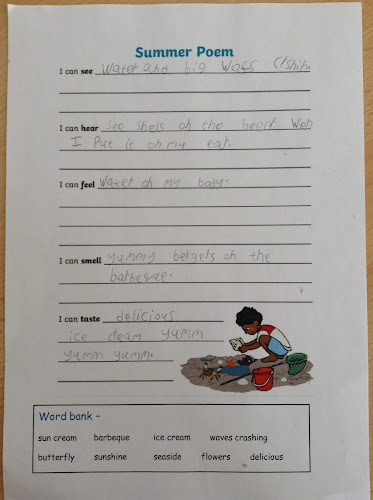 Summer Poem
I can see water and big wafs Ctshin.
I can hear see shels on the beart Wen
I Put it on my eat.
I can feel Water on my body.
I can smell yummy bergets on the
batheque.
I can taste delicious
ice cteam yumm
yumm yumm.
Word bank –
sun cream barbeque ice cream waves crashing
butterfly sunshine seaside flowers delicious